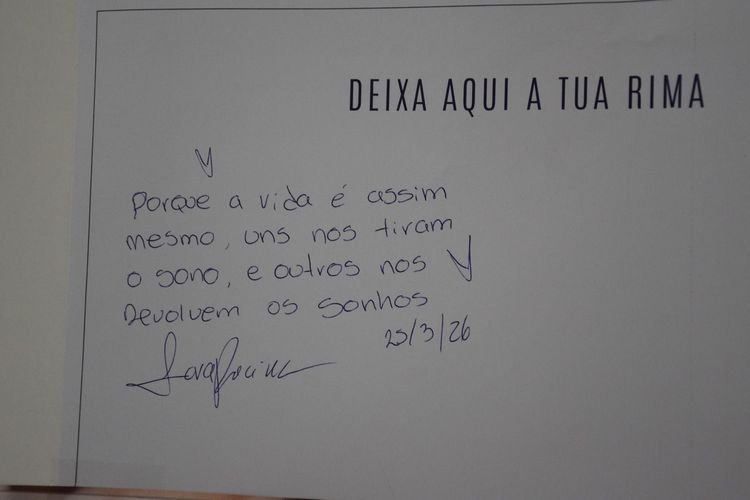 DEIXA AQUI A TUA RIMA
Porque a vida é assim
mesmo, uns nos tiram
o sono, e outros nos
Devolvem os sonhos
25/3/26